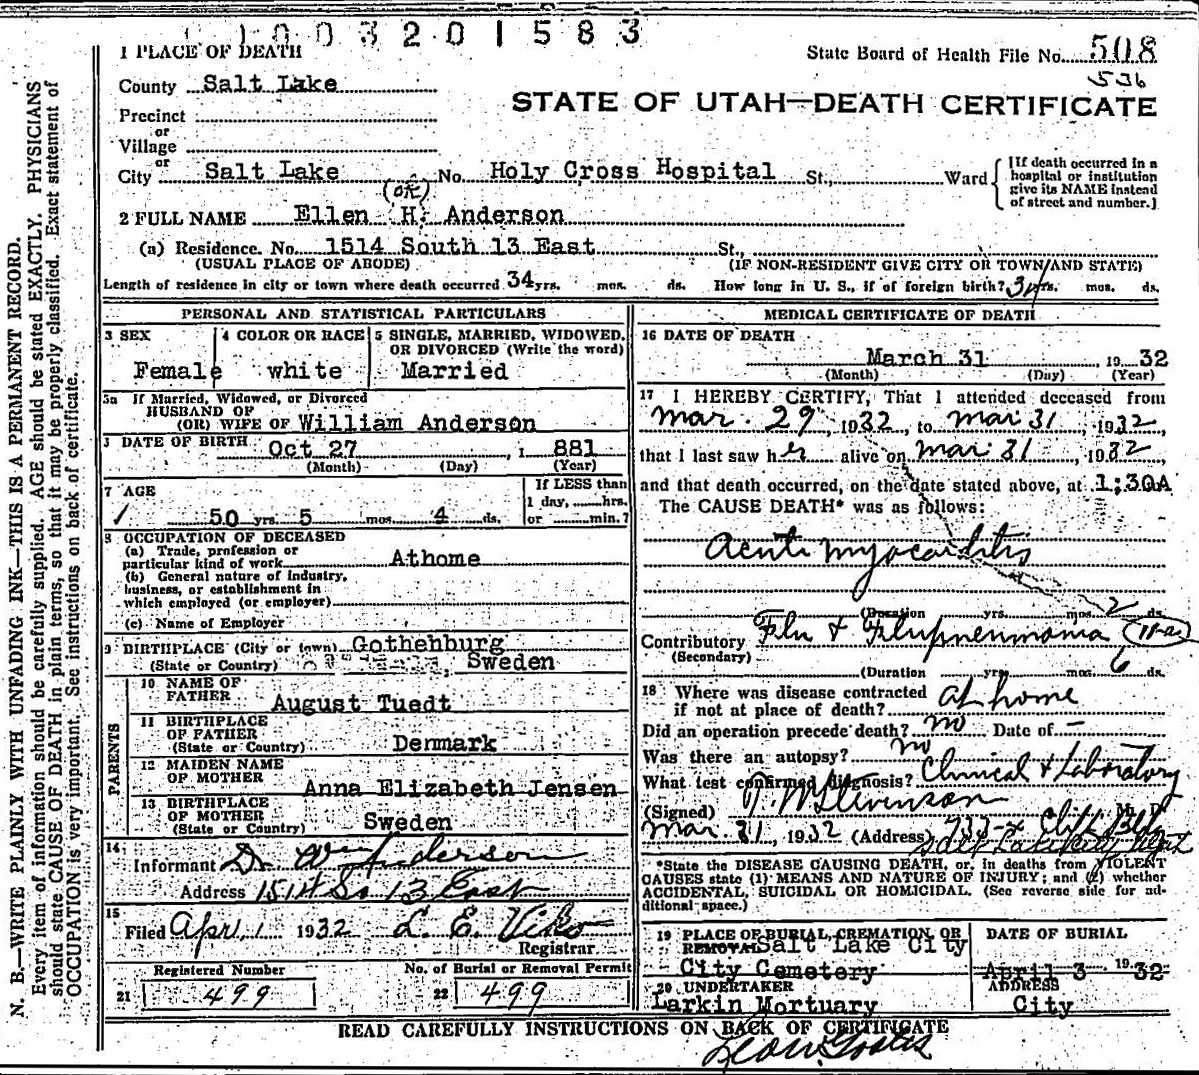 1003201583
1 PLACE OF DEATH
State Board of Health File No. 508
536
County Salt Lake
STATE OF UTAH—DEATH CERTIFICATE
Precinct
or
Village
or
City Salt Lake No. Holy Cross Hospital St., Ward
[If death occurred in a hospital or institution give its NAME instead of street and number.]
(OK)
2 FULL NAME Ellen H. Anderson
(a) Residence. No. 1514 South 13 East St.,
(USUAL PLACE OF ABODE) (IF NON-RESIDENT GIVE CITY OR TOWN AND STATE)
Length of residence in city or town where death occurred 34 yrs. mos. ds. How long in U. S., if of foreign birth? 34 yrs. mos. ds.
PERSONAL AND STATISTICAL PARTICULARS
3 SEX
Female
4 COLOR OR RACE
white
5 SINGLE, MARRIED, WIDOWED,
OR DIVORCED (Write the word)
Married
5a If Married, Widowed, or Divorced
HUSBAND OF
(OR) WIFE OF William Anderson
DATE OF BIRTH Oct 27, 1 881
(Month) (Day) (Year)
7 AGE
50 yrs. 5 mos. 4 ds.
If LESS than
1 day,......hrs.
or ......min.?
8 OCCUPATION OF DECEASED
(a) Trade, profession or
particular kind of work Athome
(b) General nature of industry,
business, or establishment in
which employed (or employer)
(c) Name of Employer
9 BIRTHPLACE (City or town) Gothenburg
(State or Country) Sweden
PARENTS
10 NAME OF
FATHER August Tuedt
11 BIRTHPLACE
OF FATHER
(State or Country) Denmark
12 MAIDEN NAME
OF MOTHER Anna Elizabeth Jensen
13 BIRTHPLACE
OF MOTHER
(State or Country) Sweden
14
Informant Dr Wm Anderson
Address 1514 So 13 East
15
Filed Apr. 1 1932 L. E. Viko
Registrar
Registered Number
21 499
No. of Burial or Removal Permit
22 499
MEDICAL CERTIFICATE OF DEATH
16 DATE OF DEATH
March 31, 19 32
(Month) (Day) (Year)
17 I HEREBY CERTIFY, That I attended deceased from
Mar. 29, 1932, to Mar 31, 1932,
that I last saw her alive on Mar 31, 1932,
and that death occurred, on the date stated above, at 1;30A
The CAUSE DEATH* was as follows:
Acute myocarditis
(Duration yrs. mos. 2 ds.
Contributory Flu & Flupneumonia (11-a)
(Secondary)
(Duration yrs. mos. 6 ds.
18 Where was disease contracted
if not at place of death? at home
Did an operation precede death? no Date of —
Was there an autopsy? no
What test confirmed diagnosis? Clinical & Laboratory
(Signed) Stevenson M. D.
Mar. 31, 1932 (Address) Clift Bldg
*State the DISEASE CAUSING DEATH, or, in deaths from VIOLENT
CAUSES state (1) MEANS AND NATURE OF INJURY; and (2) whether
ACCIDENTAL, SUICIDAL OR HOMICIDAL. (See reverse side for ad-
ditional space.)
19 PLACE OF BURIAL, CREMATION, OR
REMOVAL Salt Lake City
City Cemetery
DATE OF BURIAL
April 3 19 32
20 UNDERTAKER
Larkin Mortuary
ADDRESS
City
READ CAREFULLY INSTRUCTIONS ON BACK OF CERTIFICATE
N. B.—WRITE PLAINLY WITH UNFADING INK—THIS IS A PERMANENT RECORD.
Every item of information should be carefully supplied. AGE should be stated EXACTLY. PHYSICIANS
should state CAUSE OF DEATH in plain terms, so that it may be properly classified. Exact statement of
OCCUPATION is very important. See instructions on back of certificate.